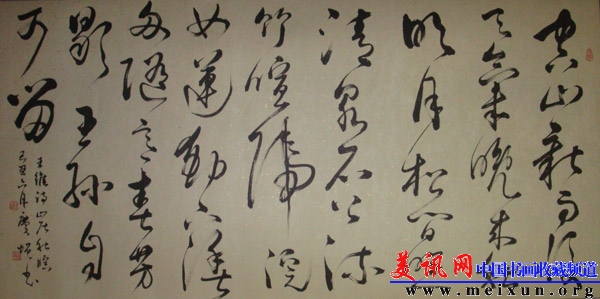 空山新雨後
天氣晚來秋
明月松間照
清泉石上流
竹喧歸浣
女蓮動下漁
舟隨意春芳
歇王孫自
可留
王維詩山居秋暝
己丑六月 书
美讯网 中国书画收藏频道
www.meixun.org